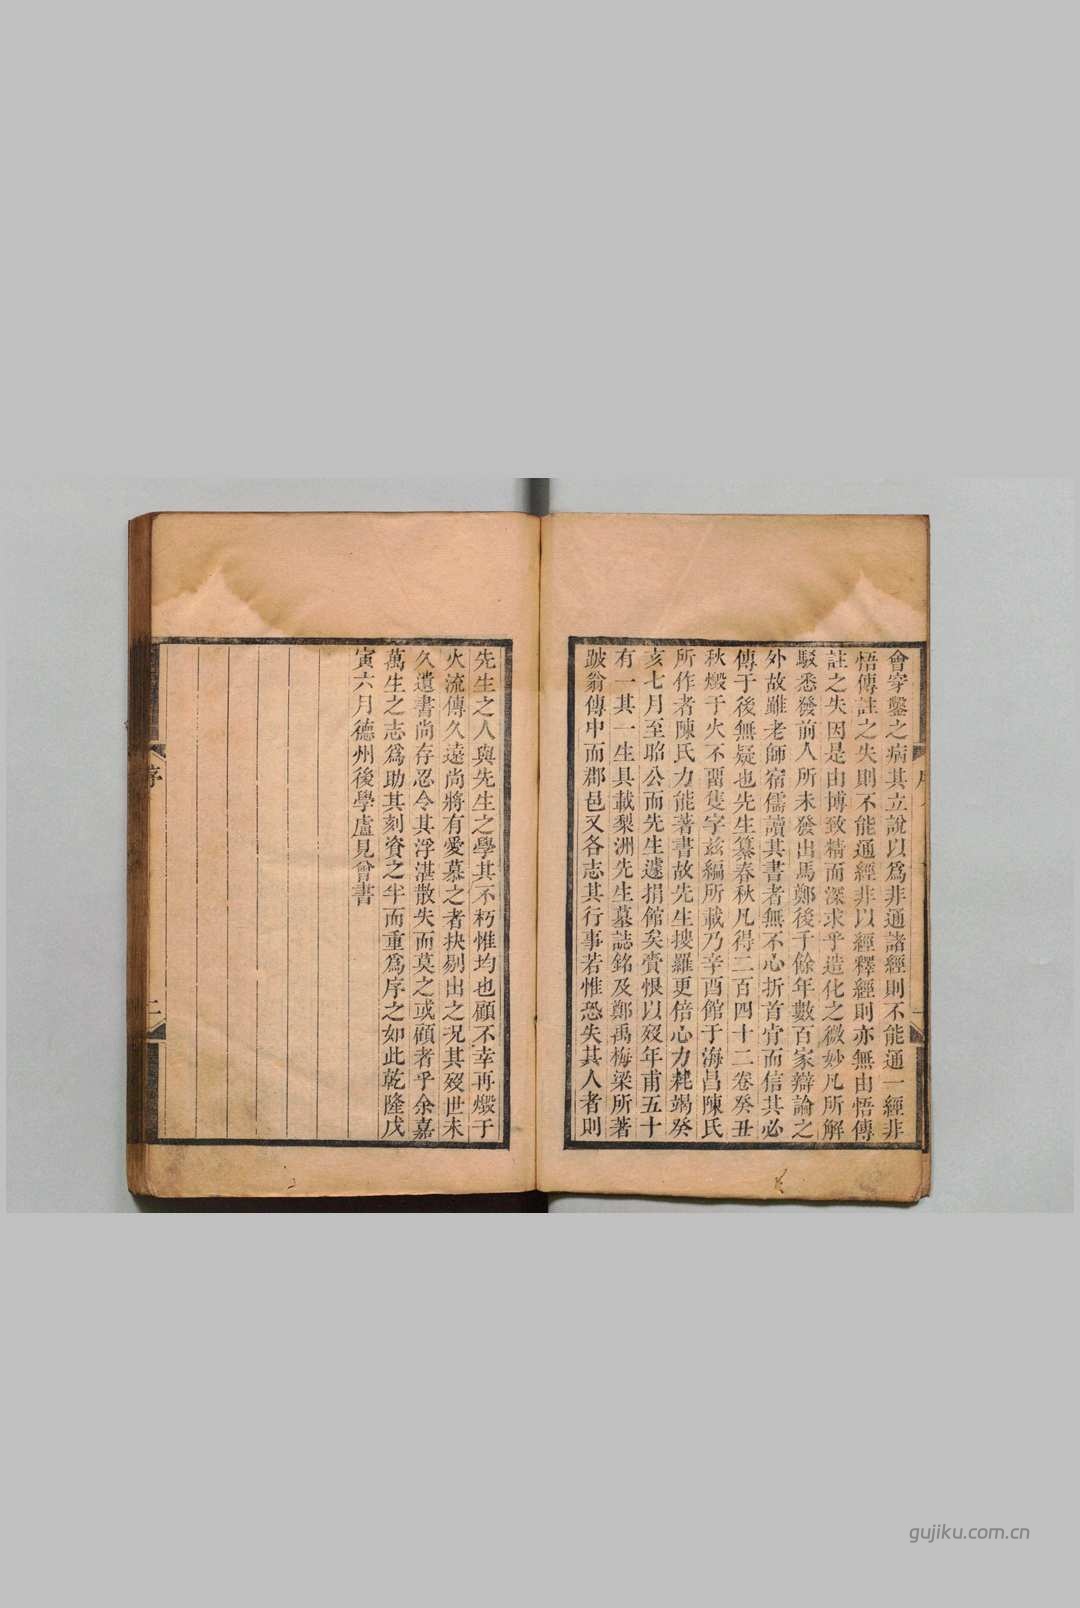 會穿鑿之病其立說以爲非通諸經則不能通一經非
悟傳註之失則不能通經非以經釋經則亦無由悟傳
註之失因是由博致精而深求乎造化之微妙凡所解
駁悉發前人所未發出馬鄭後千餘年數百家辯論之
外故雖老師宿儒讀其書者無不心折首肯而信其必
傳于後無疑也先生纂春秋凡得二百四十二卷癸丑
秋燬于火不畱隻字兹編所載乃辛酉館于海昌陳氏
所作者陳氏力能著書故先生搜羅更倍心力耗竭癸
亥七月至昭公而先生遽捐館矣賫恨以歿年甫五十
有一其一生具載梨洲先生墓誌銘及鄭禹梅梁所著
跛翁傳中而郡邑又各志其行事若惟恐失其人者則
先生之人與先生之學其不朽惟均也顧不幸再燬于
火流傳久遠尚將有愛慕之者抉剔出之况其歿世未
久遺書尚存忍令其浮湛散失而莫之或顧者乎余嘉
萬生之志爲助其刻資之半而重爲序之如此乾隆戊
寅六月德州後學盧見曾書
序
二
gujiku.com.cn